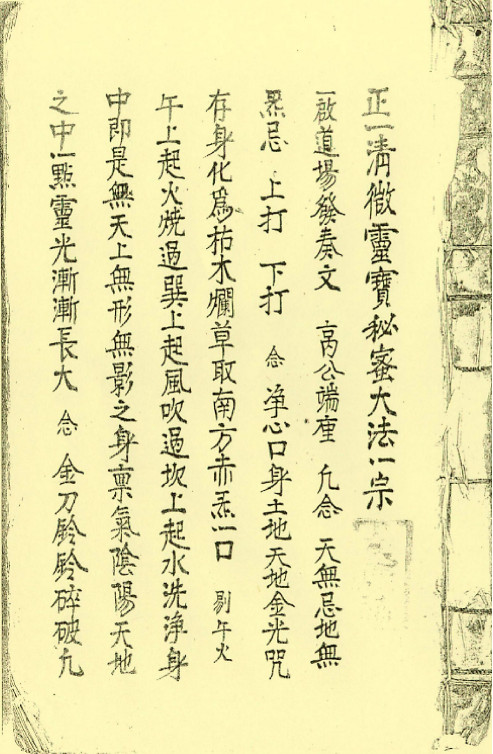 正一清微靈寶秘蜜大法一宗
一啟道場發奏文　高公端座　凢念　天無忌地無
炁忌　上打　下打　念　淨心口身土地天地金光咒
存身化爲枯木爛草取南方赤炁一口　剔午火
午上起火燒過巽上起風吹過坎上起水洗淨身
中即是無天上無形無影之身禀氣陰陽天地
之中一點靈光漸漸長大　念　金刀鈴鈴碎破凢